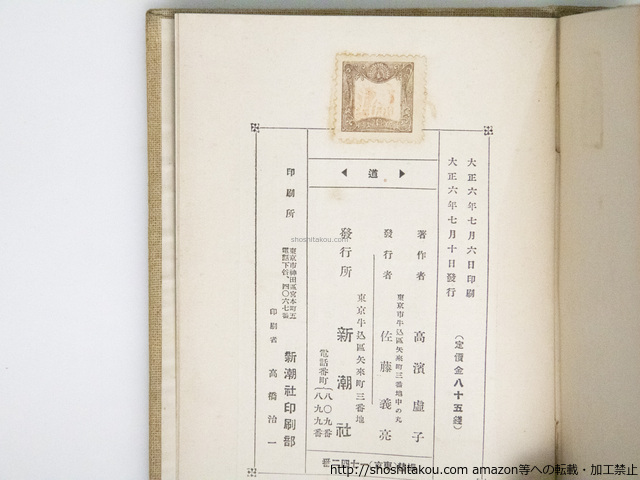 大正六年七月六日印刷
大正六年七月十日發行
(定價金八十五錢)
道
著作者 高濱虚子
東京市牛込區矢來町三番地中の丸
發行者 佐藤義亮
東京牛込區矢來町三番地
發行所 新潮社
電話番町(八〇九番
八九九番
印刷所 新潮社印刷部
電話下谷、四〇六七番
印刷者 高橋治一
shoshitakou.com
http://shoshitakou.com amazon等への転載・加工禁止